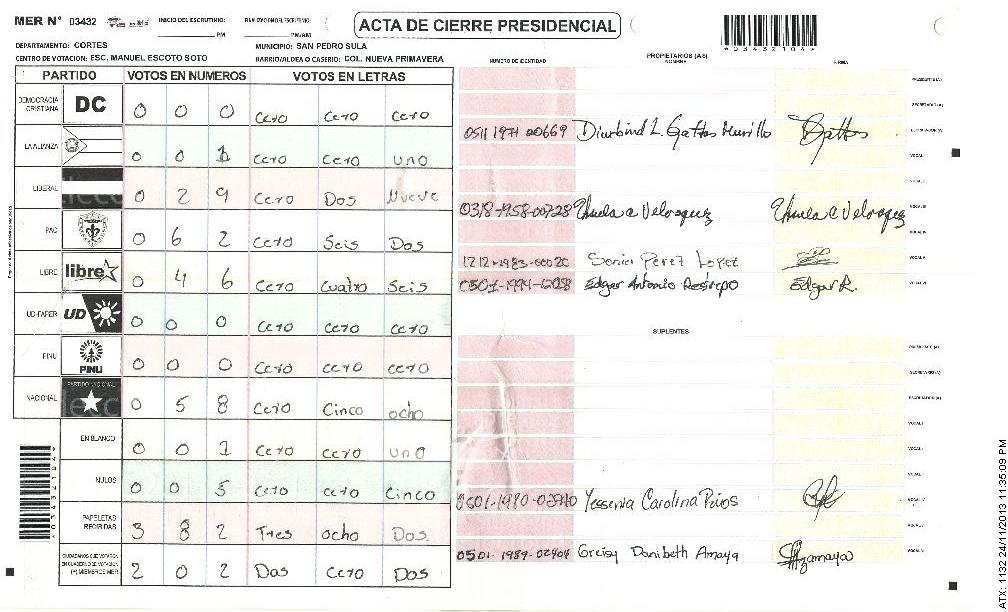 MER N° 03432 INICIO DEL ESCRUTINIO: PM FINALIZACION DEL ESCRUTINIO: PM/AM
ACTA DE CIERRE PRESIDENCIAL
03432104
DEPARTAMENTO: CORTES MUNICIPIO: SAN PEDRO SULA
CENTRO DE VOTACION: ESC. MANUEL ESCOTO SOTO BARRIO/ALDEA O CASERIO: COL. NUEVA PRIMAVERA
PARTIDO VOTOS EN NUMEROS VOTOS EN LETRAS
DEMOCRACIA CRISTIANA DC 0 0 0 Cero Cero Cero
LA ALIANZA 0 0 1 Cero Cero uno
LIBERAL 0 2 9 Cero Dos Nueve
PAC 0 6 2 Cero Seis Dos
LIBRE libre 0 4 6 Cero Cuatro Seis
UD-FAPER UD 0 0 0 Cero Cero Cero
PINU PINU 0 0 0 Cero cero cero
NACIONAL PARTIDO NACIONAL 0 5 8 Cero Cinco ocho
EN BLANCO 0 0 1 Cero Cero uno
NULOS 0 0 5 Cero cero Cinco
PAPELETAS RECIBIDAS 3 8 2 Tres ocho Dos
CIUDADANOS QUE VOTARON EN CUADERNO DE VOTACION (+) MIEMBROS MER 2 0 2 Dos Cero Dos
NUMERO DE IDENTIDAD PROPIETARIOS (AS) NOMBRE FIRMA
PRESIDENTE (A)
SECRETARIO (A)
0511 1971 00669 Gattos Murillo Gattos ESCRUTADOR (A)
VOCAL I
0318-1958-00728 a Velasquez a Velasquez VOCAL III
1212-1983- Sonia Perez Lopez VOCAL V
0501-1994-12058 Edgar Antonio Restrepo Edgar R.
SUPLENTES
PRESIDENTE (A)
SECRETARIO (A)
ESCRUTADOR (A)
VOCAL I
Yessenia Carolina
0501-1989-02404 Greisy Danibeth Amaya
ATX: 1132 24/11/2013 11:35:09 PM